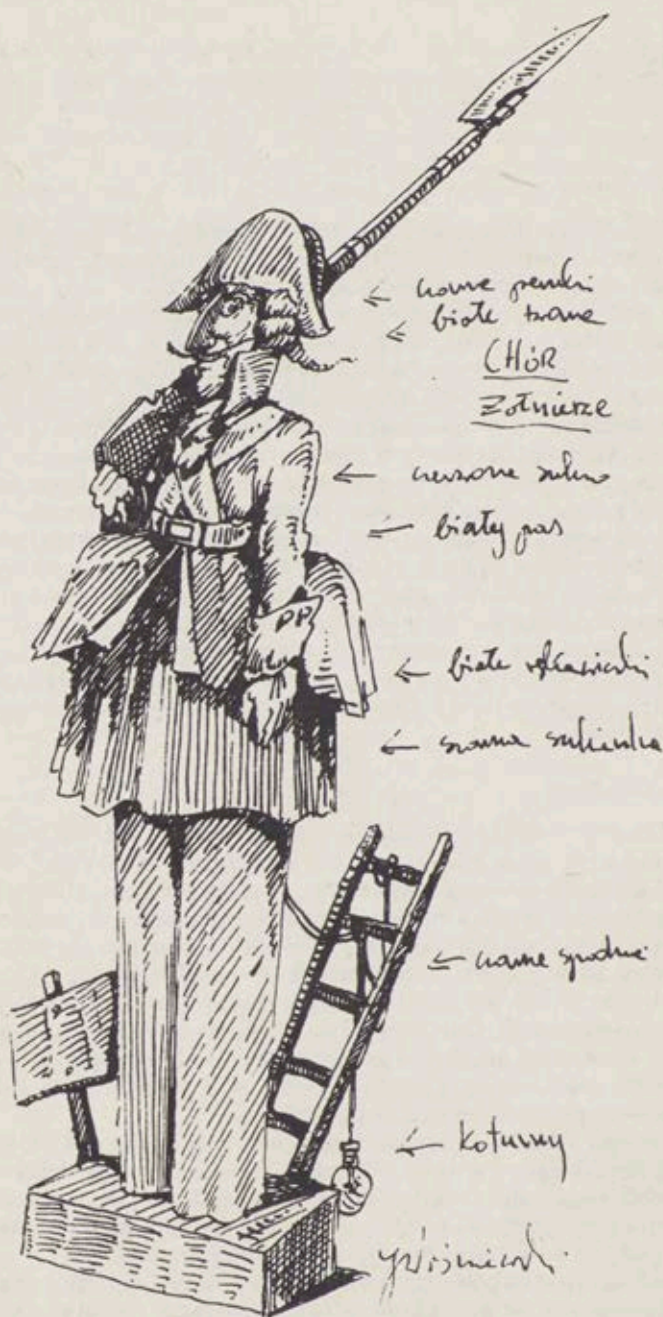 czarne peruki
białe twarze
CHÓR
Żołnierze
czerwone sukno
biały pas
PP
białe rękawiczki
czarna sukienka
czarne spodnie
koturny